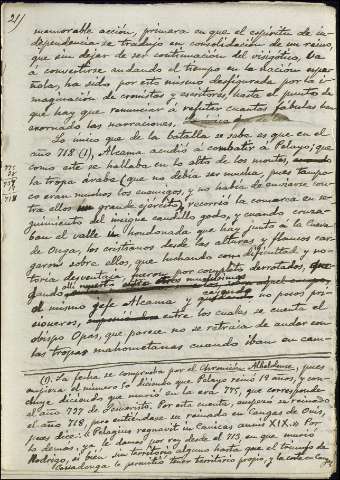 21
memorable acción, primera en que el espíritu de in-
dependencia se tradujo en consolidación de un reino,
que sin dejar de ser continuación del visigótico, iba
a convertirse andando el tiempo en la nación espa-
ñola, ha sido por esto mismo desfigurada por la i-
maginación de cronistas y escritores, hasta el punto de
que hay que renunciar á refutar cuantas fábulas han
exornado las narraciones,
Lo único que de la batalla se sabe es que en el
año 718 (1), Alcama acudió a combatir á Pelayo; que
como este se hallaba en lo alto de los montes,
la tropa árabe (que no debía ser mucha, pues tampo-
co eran muchos los enemigos, y no había de enviarse con-
tra ellos gran ejército) recorría la comarca en se-
guimiento del insigne caudillo godo, y cuando cruza-
ban el valle ú hondonada que hay junto á la Cueva
de Onga, los cristianos desde las alturas y flancos car-
garon sobre ellos, que luchando con dificultad y no-
toria desventaja, fueron por completo derrotados, que-
dando allí muerto entre otros muchísimos
el mismo jefe Alcama y no pocos pri-
sioneros, entre los cuales se cuenta el
obispo Opas, que parece no se retraía de andar con
las tropas mahometanas cuando iban en cam-
775
38
737
19
718
(1). La fecha se comprueba por el Chronicon Albeldense, pues
en el número 50 diciendo que Pelayo reinó 19 años, y con-
cluye diciendo que murió en la era 775, que corresponde
el año 737 de Jesucristo. Por esta cuenta, empezó su reinado
el año 718, pero entiéndase su reinado en Cangas de Onís,
pues dice: "Pelagius regnavit in Canicas annis XIX." Por
lo demás, ya le damos por rey desde el 713, en que murió
Rodrigo, si bien sin territorio alguno hasta que el triunfo de
Covadonga le permitió tener territorio propio, y la corte en Cangas